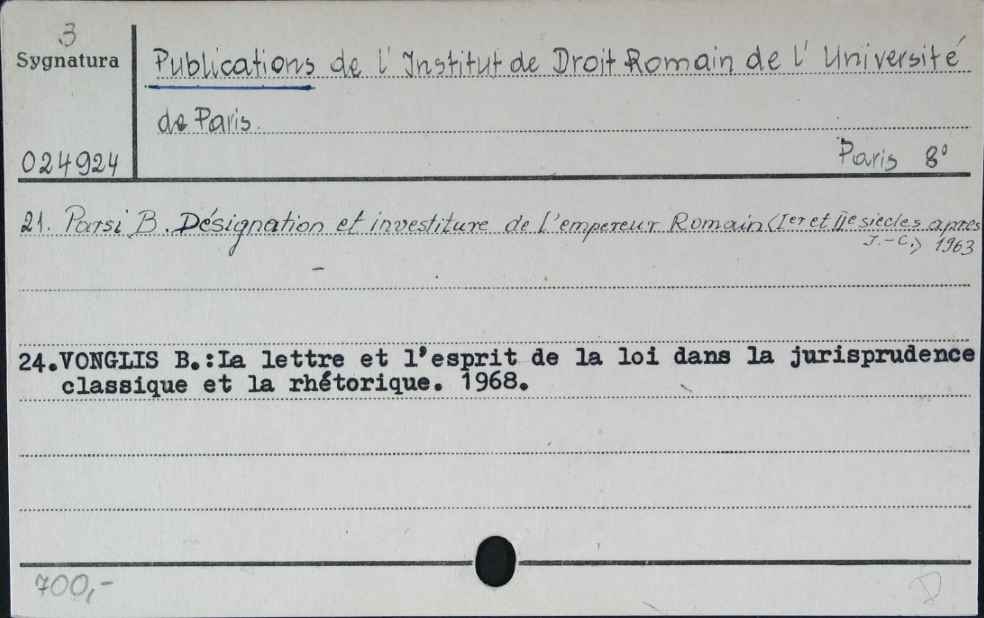 3
Sygnatura
Publications de l'Institut de Droit Romain de l'Université
de Paris.
024924
Paris 8°
21. Parsi B. Désignation et investiture de l'empereur Romain (Ier et IIe siècles apres
J.-C.) 1963
24.VONGLIS B.:La lettre et l'esprit de la loi dans la jurisprudence
classique et la rhétorique. 1968.
700,-
D